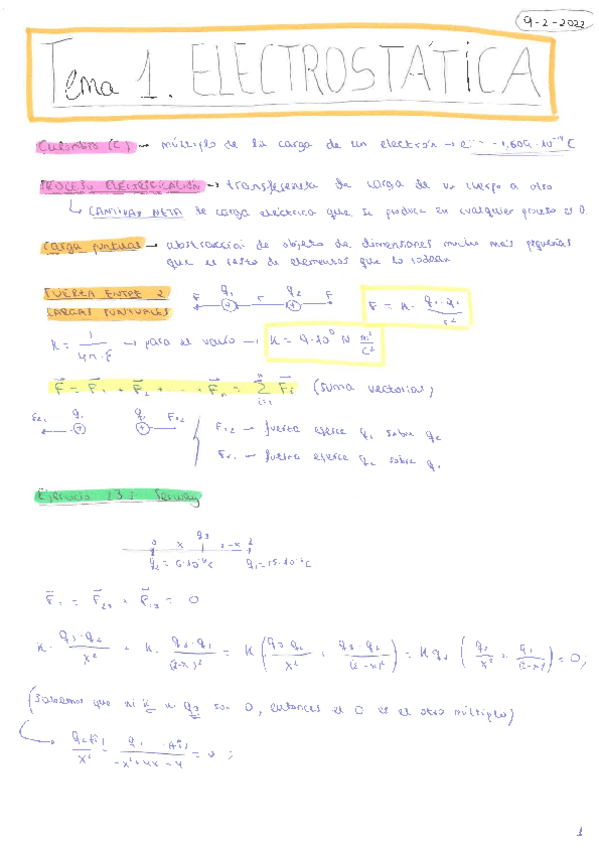 9-2-2022
Tema 1. ELECTROSTÁTICA
Culombio (C) → múltiplo de la carga de un electrón → e⁻ = -1,609·10⁻¹⁹ C
PROCESO ELECTRIFICACIÓN → transferencia de carga de un cuerpo a otro
↳ CANTIDAD NETA de carga eléctrica que se produce en cualquier proceso es 0.
Carga puntual → abstracción de objeto de dimensiones mucho más pequeñas
que el resto de elementos que lo rodean
FUERZA ENTRE 2
CARGAS PUNTUALES
F q₁ r q₂ F
F = K · q₁·q₂ / r²
K = 1 / 4π·ε → para el vacío → K = 9·10⁹ N m²/C²
F = F₁ + F₂ + ... + Fₙ = Σ Fᵢ (suma vectorial)
F₁₂ → fuerza ejerce q₁ sobre q₂
F₂₁ → fuerza ejerce q₂ sobre q₁
Ejercicio 13: Serway
0 x q₃ 2-x 2
q₂ = 6·10⁻⁶ C q₁ = 15·10⁻⁶ C
= F₂₃ + F₁₃ = 0
K · q₃·q₂ / x² + K · q₃·q₁ / (2-x)² = K (q₃·q₂ / x² + q₃·q₁ / (2-x)²) = K q₃ (q₂ / x² + q₁ / (2-x)²) = 0;
(Sabemos que ni K ni q₃ son 0, entonces el 0 es el otro múltiplo)
-x²+4x-4 = 0;
1